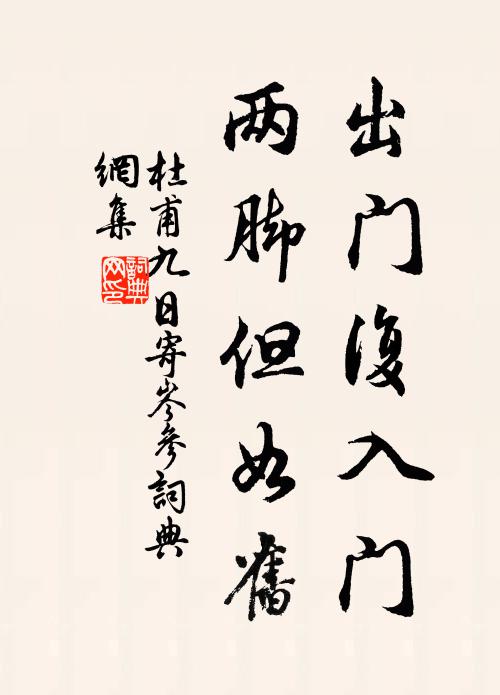 出门復入门
两脚但如舊
杜甫九日寄岑參詞典
網集
詞典
网印